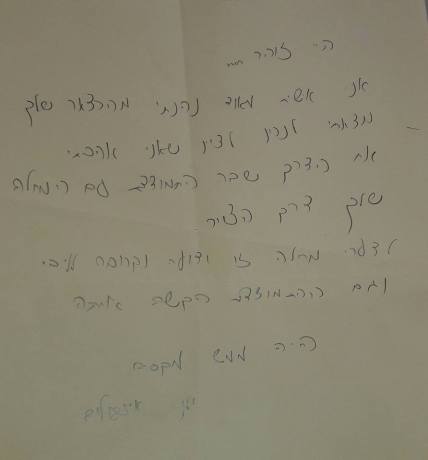 היי זוהר ...
אני אישית מאוד נהנתי מהרצאה שלך
מצאתי לנכון לציין שאני אהבתי
את הדרך שבה התמודדת עם המחלה
שלך דרך הציור
לצערי מחלה זו ידועה וקרובה לליבי
וגם ההתמודדות הקשה איתה
היה ממש מקסים